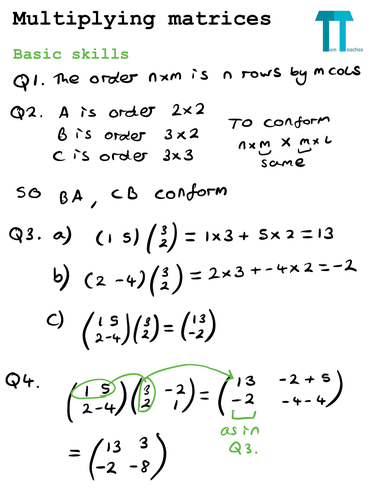 Multiplying matrices
TT
Tom Teaches
Basic skills
Q1. The order n×m is n rows by m cols
Q2. A is order 2×2
B is order 3×2
C is order 3×3
TO conform
n×m × m×L
same
SO BA, CB conform
Q3. a) (1 5)(3 2) = 1×3 + 5×2 = 13
b) (2 -4)(3 2) = 2×3 + -4×2 = -2
c) (1 5 2 -4)(3 2) = (13 -2)
Q4. (1 5 2 -4)(3 -2 2 1) = (13 -2+5 -2 -4-4)
as in
Q3.
= (13 3 -2 -8)